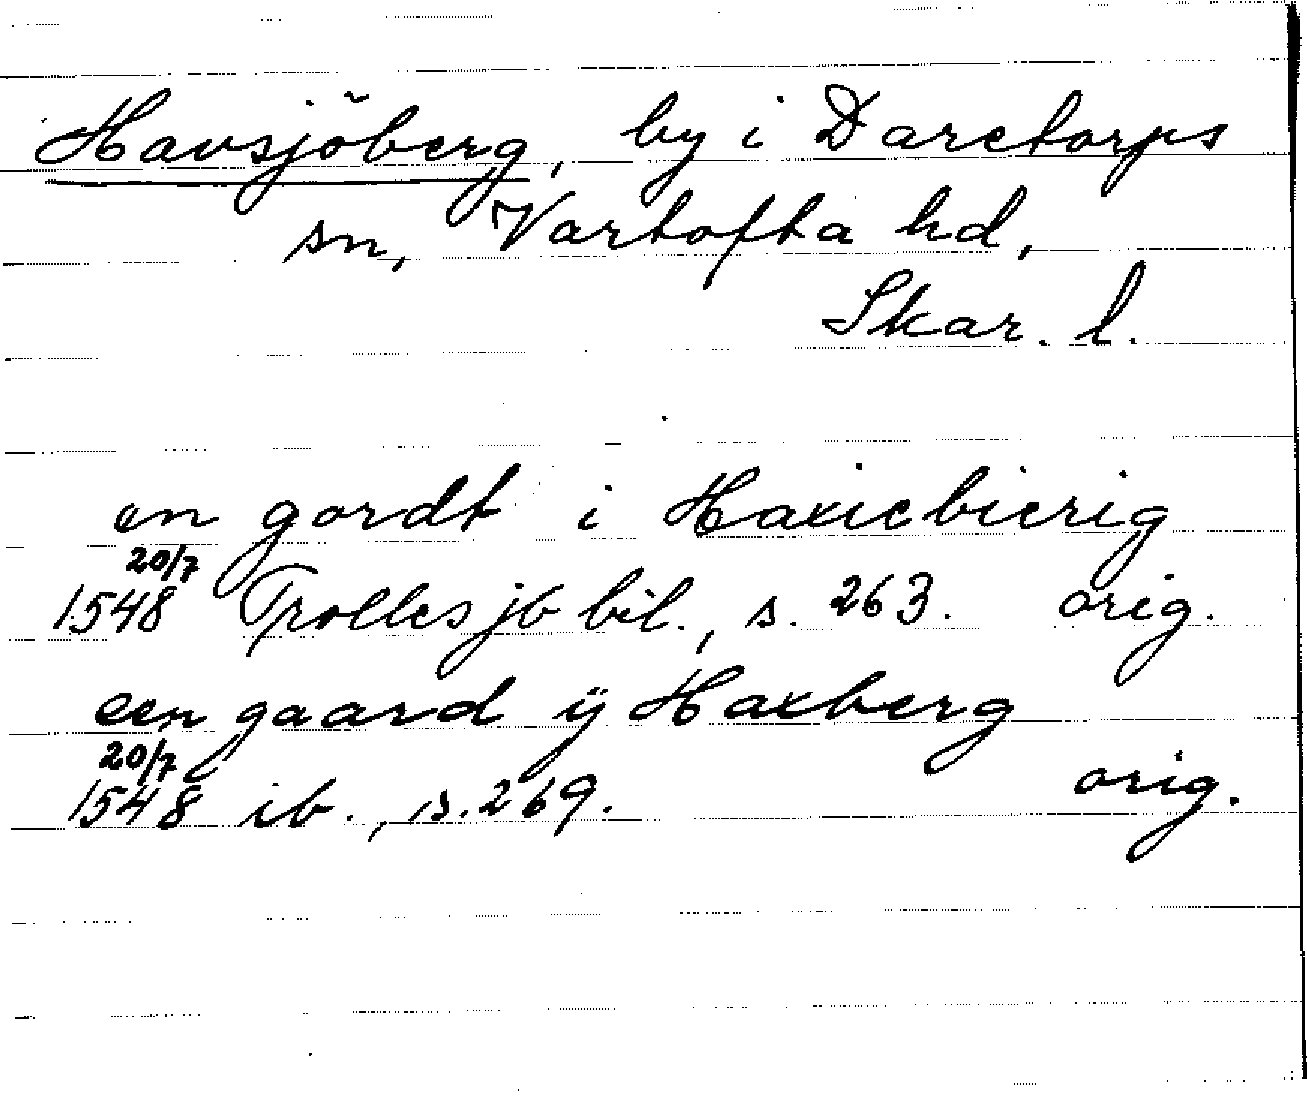 Havsjöberg, by i Daretorps
sn, Vartofta hd,
Skar. l.
en gordt i Haxiebierig
20/7
1548 Trolles jb bil., s. 263. orig.
een gaard ij Haxberg
20/7
1548 ib., s. 269. orig.